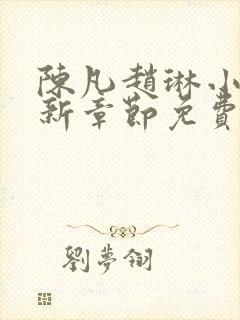 陳凡趙琳小
新章節免費
劉夢翎